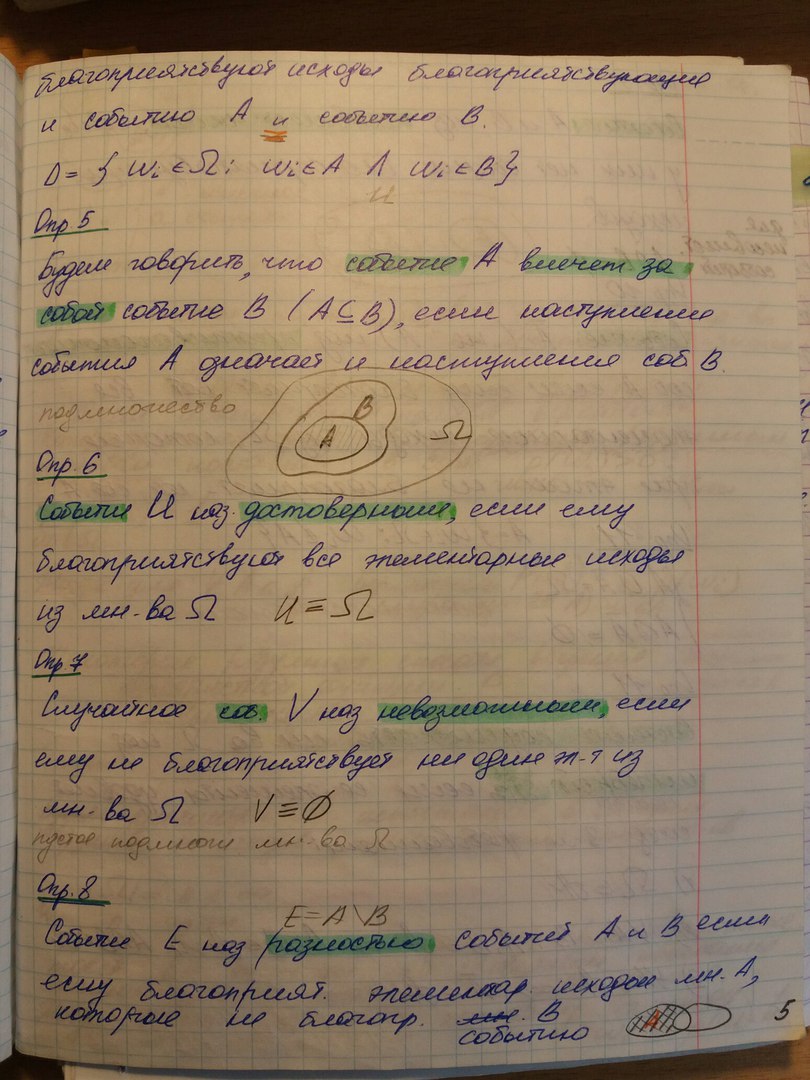 благоприятствуют исходы благоприятствующие
и событию A и событию B.
D = { wi ∈ Ω : wi ∈ A ∧ wi ∈ B }
и
Опр 5
Будем говорить, что событие A влечет за
собой событие B (A ⊆ B), если наступление
события A означает и наступления соб B.
подмножество
B
A
Ω
Опр. 6
Событие U наз. достоверным, если ему
благоприятствуют все элементарные исходы
из мн-ва Ω U ≡ Ω
Опр. 7
Случайное соб. V наз невозможным, если
ему не благоприятствует ни один эл-т из
мн-ва Ω V ≡ ∅
пустое подмнож мн-ва Ω
Опр. 8
E = A \ B
Событие E наз разностью событий A и B если
ему благоприят. элементар. исходы мн. A,
которые не благопр. B
событию
A
5